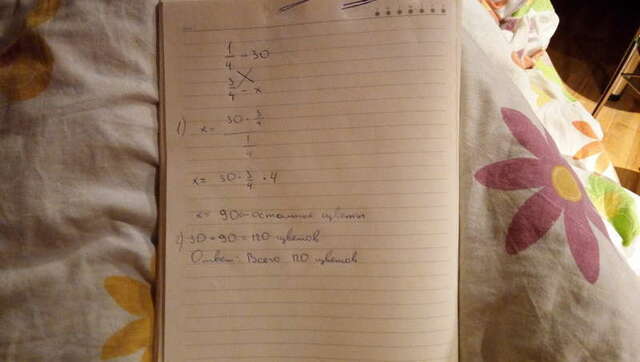 1/4 - 30
3/4 - x
1) x = 30 · 3/4
1/4
x = 30 · 3/4 · 4
x = 90 - остальные цветы
2) 30 + 90 = 120 цветов
Ответ: Всего 120 цветов